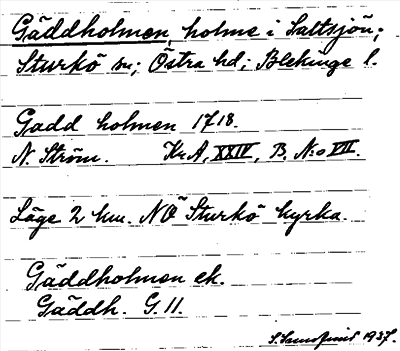 Gäddholmen, holme i Saltsjön;
Sturkö sn; Östra hd; Blekinge l.
Gadd holmen 1718.
N. Ström. Kr.A, XXIV, B. N:o VII.
Läge 2 km. NÖ Sturkö kyrka.
Gäddholmen ek.
Gäddh. G. 11.
1937.